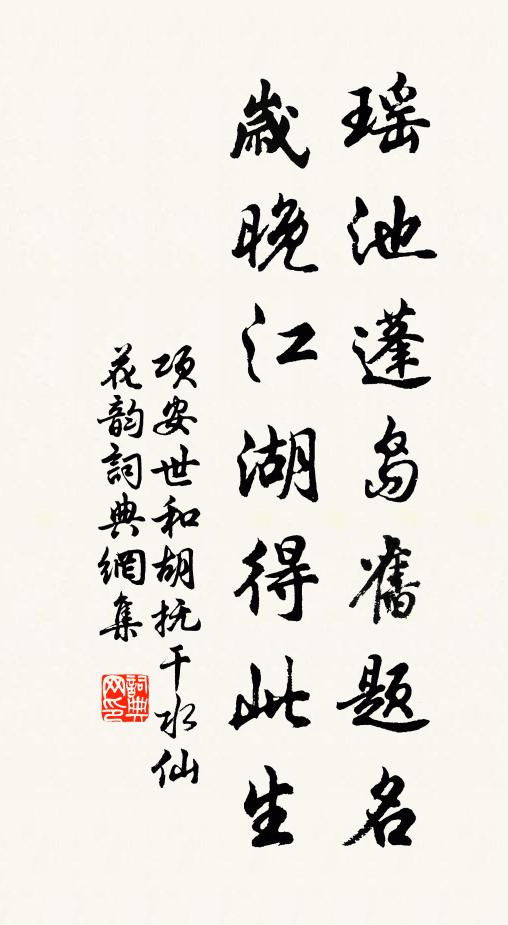 瑶池蓬岛舊题名
歲晚江湖得此生
项安世和胡抚干水仙
花韵詞典網集
詞典网印